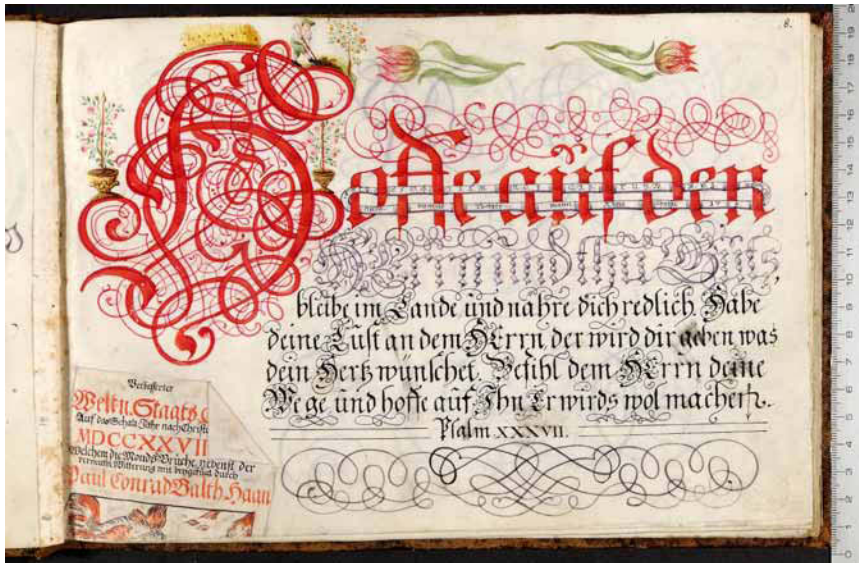 8.
Hoffe aüf den
HErrn und thu Guts,
bleibe im Lande ünd nahre dich redlich. Habe
deine Lüst an dem HErrn, der wird dir geben was
dein Hertz wünschet. Befihl dem HErrn deine
Wege ünd hoffe aüf Ihn Er wirds wol machen.
Psalm XXXVII.
Verbesserter
Welt u. Staats C
Auf das Schalt Jahr nach Christi
MDCCXXVII
Welchem die Monds Brüche, nebenst der
Witterung mit beygefügt durch
Paul Conrad Balth. Haan
0 1 2 3 4 5 6 7 8 9 10 11 12 13 14 15 16 17 18 19 20